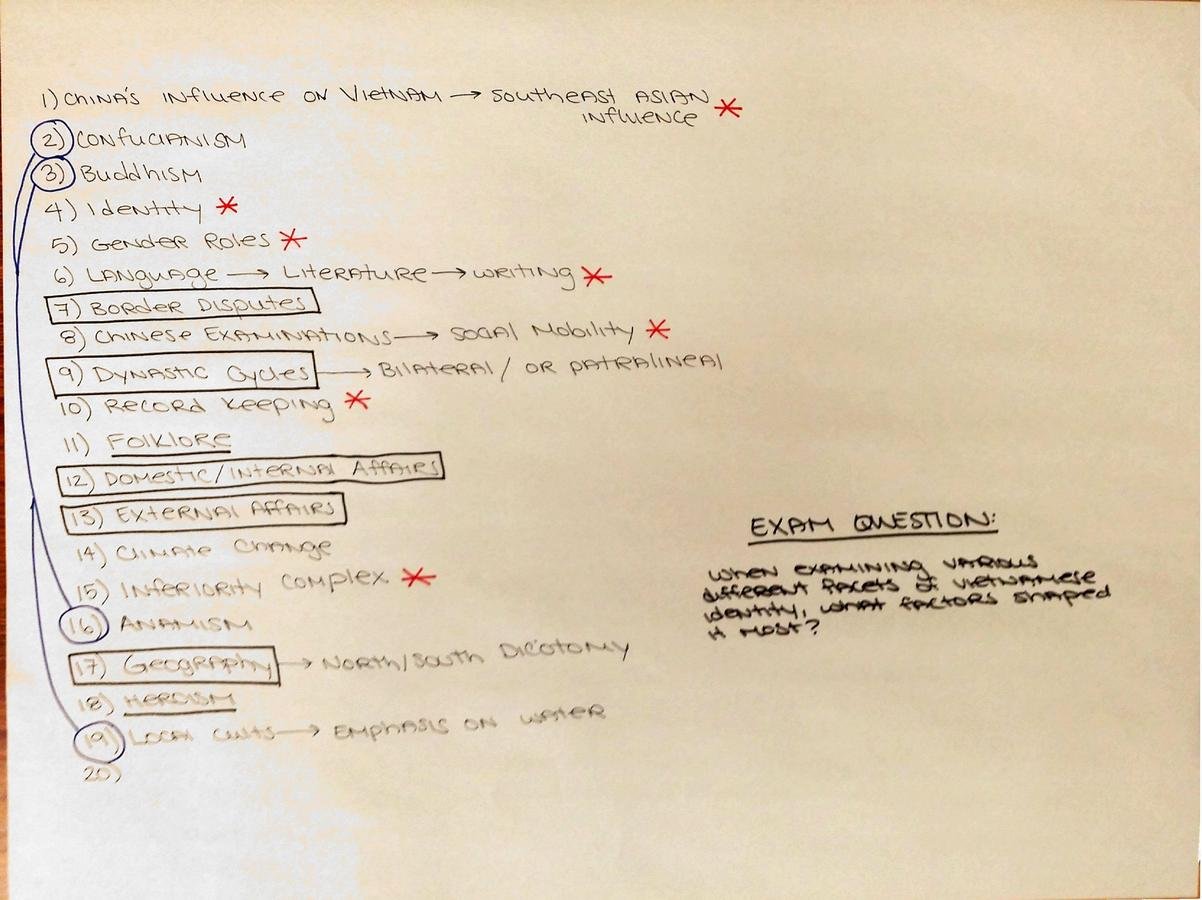 1) CHINA'S INFLUENCE ON VIETNAM → SOUTHEAST ASIAN
INFLUENCE
2) CONFUCIANISM
3) BUDDHISM
4) IDENTITY
5) GENDER ROLES
6) LANGUAGE → LITERATURE → WRITING
7) BORDER DISPUTES
8) CHINESE EXAMINATIONS → SOCIAL MOBILITY
9) DYNASTIC CYCLES → BILATERAL / OR PATRALINEAL
10) RECORD KEEPING
11) FOLKLORE
12) DOMESTIC/INTERNAL AFFAIRS
13) EXTERNAL AFFAIRS
14) CLIMATE CHANGE
15) INFERIORITY COMPLEX
16) ANAMISM
17) GEOGRAPHY → NORTH/SOUTH DICOTOMY
18) HEROISM
19) LOCAL CULTS → EMPHASIS ON WATER
20)
EXAM QUESTION:
WHEN EXAMINING VARIOUS
DIFFERENT FACETS OF VIETNAMESE
IDENTITY, WHAT FACTORS SHAPED
IT MOST?